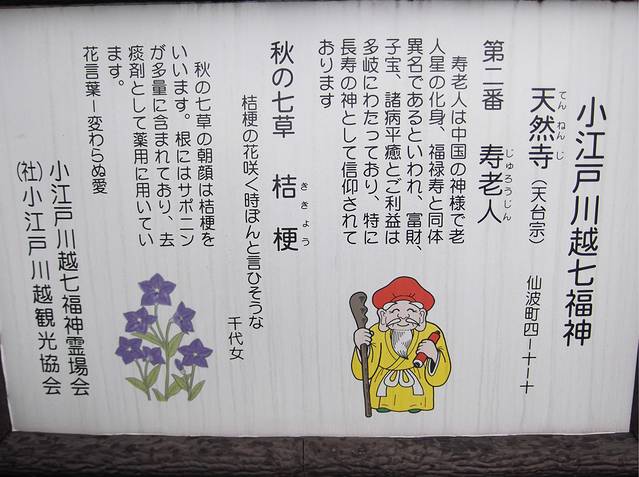 小江戸川越七福神
天然寺(天台宗) 仙波町四ー十ー十
てんねんじ
第二番 寿老人
じゅろうじん
寿老人は中国の神様で老
人星の化身、福禄寿と同体
異名であるといわれ、富財、
子宝、諸病平癒とご利益は
多岐にわたっており、特に
長寿の神として信仰されて
おります
秋の七草 桔梗
ききょう
桔梗の花咲く時ぽんと言ひそうな
千代女
秋の七草の朝顔は桔梗を
いいます。根にはサポニン
が多量に含まれており、去
痰剤として薬用に用いてい
ます。
花言葉ー変わらぬ愛
小江戸川越七福神霊場会
(社)小江戸川越観光協会